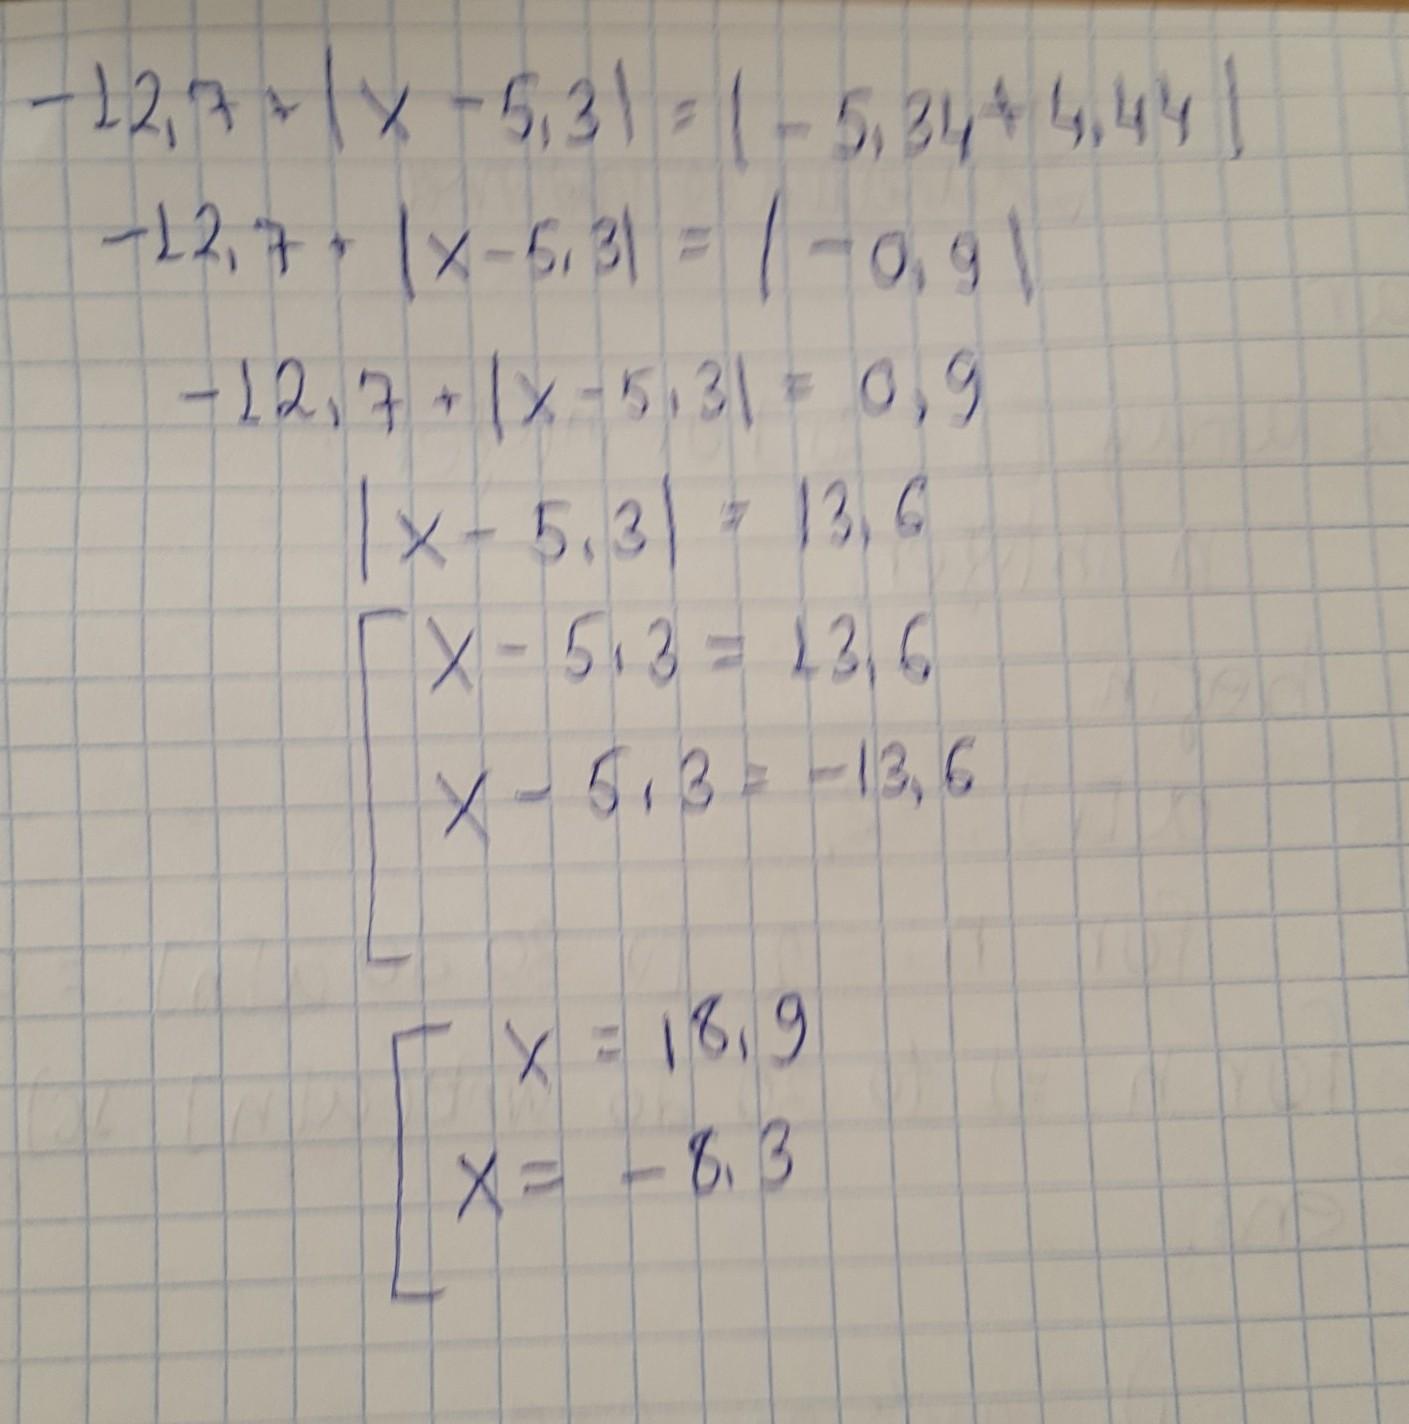 -12,7 + |x - 5,3| = |-5,34 + 4,44|
-12,7 + |x - 5,3| = |-0,9|
-12,7 + |x - 5,3| = 0,9
|x - 5,3| = 13,6
x - 5,3 = 13,6
x - 5,3 = -13,6
x = 18,9
x = -8,3